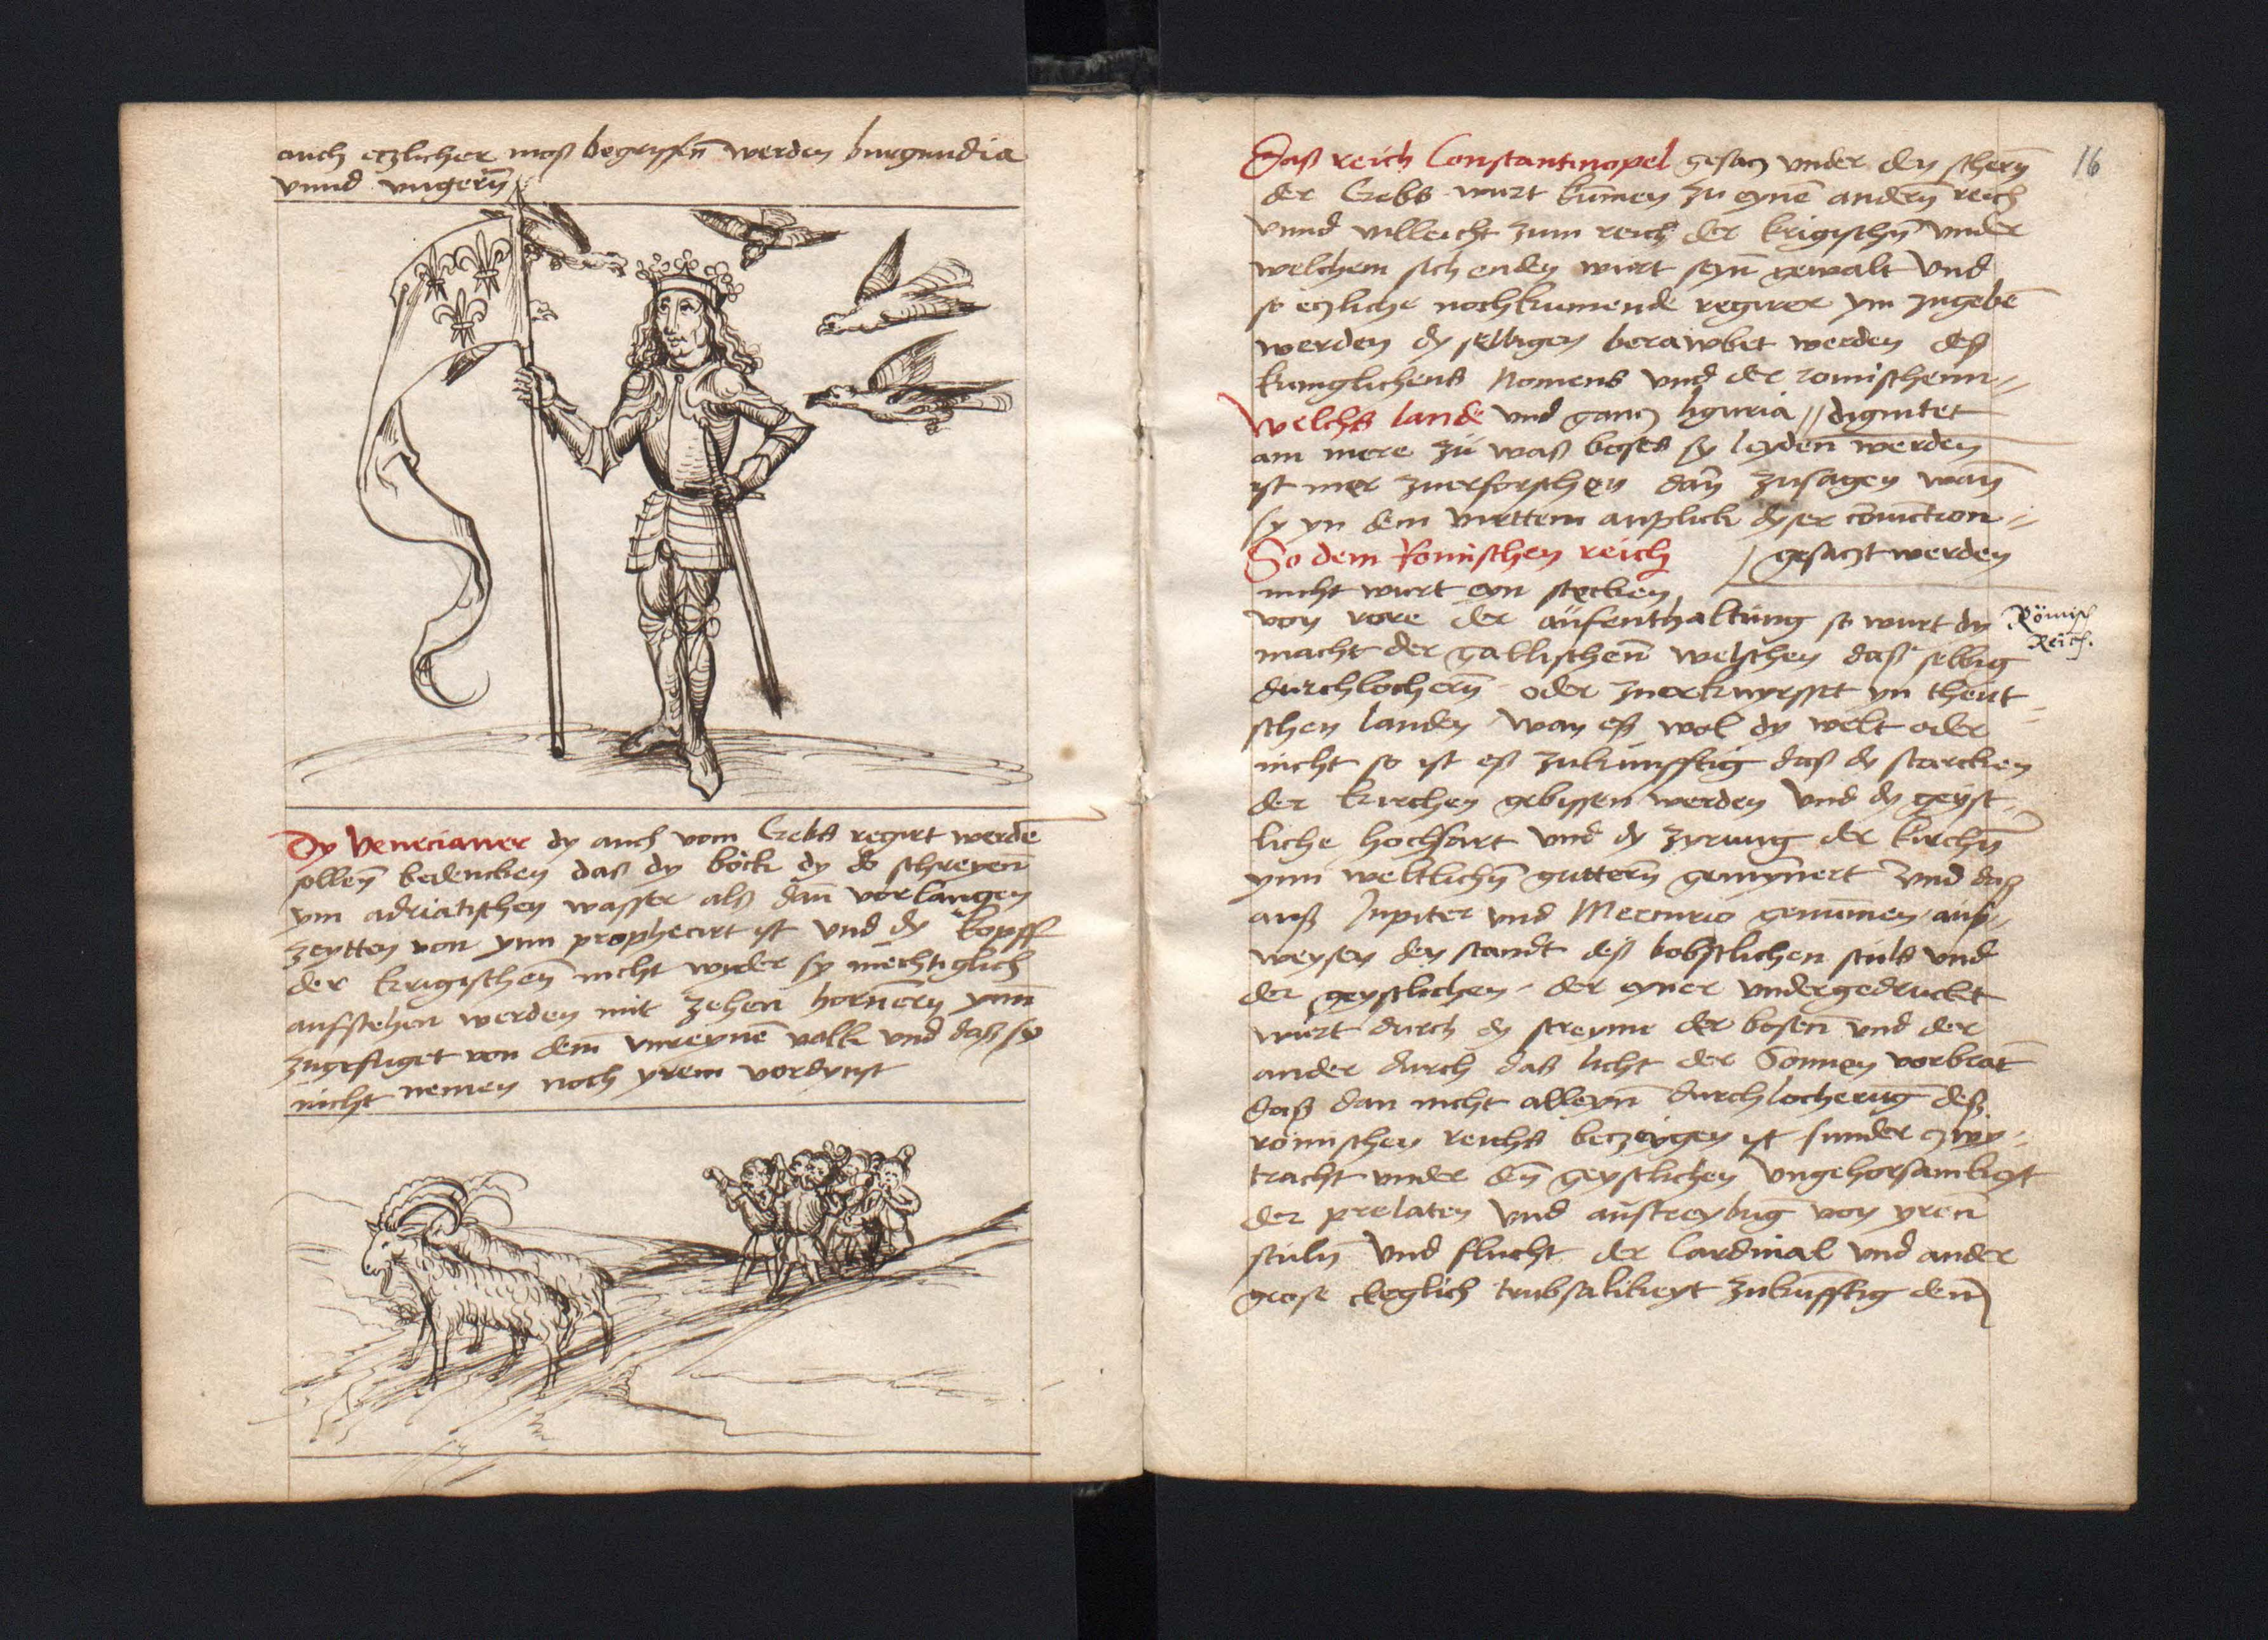 auch etzlicher moß begryffn̄ werden burgundia
vnnd vngern̄
Dy Venecianer dy auch vom Crebs regirt werdē
sollen̄ bedencken daß dy böck dy do schreyen̄
ym adriatischen wasser alß dan̄ vorlangen
zeytten von ynn prophecirt ist vnd dy kopff
der krigischen̄ nicht wyder sy mechtiglich
aufstehen werden mit zehen hornern̄ ynn̄
zugefuget von dem̄ vnreynē volk vnd daß sy
nicht nemen noch yrem vordynst
16
Daß reich Constantinopel gesacz vnder den schern̄
der Crebs wurt kūmen zu eynē andern̄ reich
vnnd villeicht zum reich der krigischn̄ vnder
welchem sich enden wurt seyn̄ gewalt vnd
so eczliche nochkumende regirer ym zugebē
werden dy selbigen berawbet werden deß
kuniglichens Nomens vnd der romischenn
Welchs lande vnd gancz liguria // dignitet
am mere zu waß boses sy leyden̄ werden
ist mer zuerforschen dan̄ zusagen wan̄
sy yn dem virttem anplick dyser cōniction
So dem Romischen reich / gesaczt werden
nicht wurt eyn stecken
von rore der aufenthaltung so wurt dy
Römisch
Reich.
macht der gallischen̄ welschen daß selbig
durchlochern̄ oder zuerknyrsset yn theut
schen landen wan eß wol dy welt oder
nicht so ist eß zukunfftig daß dy starcken
der kirchen gebissen werden vnd dy geyst
liche hochfart vnd dy zyrung der kirchn̄
ynn weltlichn̄ guttern̄ gemynnert vnd daß
auß Jupiter vnd Mercurio genūmen auß
weysen den standt deß bobstlichen stuls vnd
der geystlichen der eyner vndergedruckt
wurt durch dy streyme der bosen̄ vnd der
ander durch daß licht der Sonnen vorbrāt
daß dan nicht alleyn̄ durchlocherūg deß
römischen reichs beczeygen ist sunder czwy
tracht vnder den̄ geystlichen vngehorsamkeyt
der prelaten vnd außtreybūg von yren̄
stuln̄ vnd flucht der Cardinal vnd ander
grose cleglich trubsalikeyt zukūfftig den̄